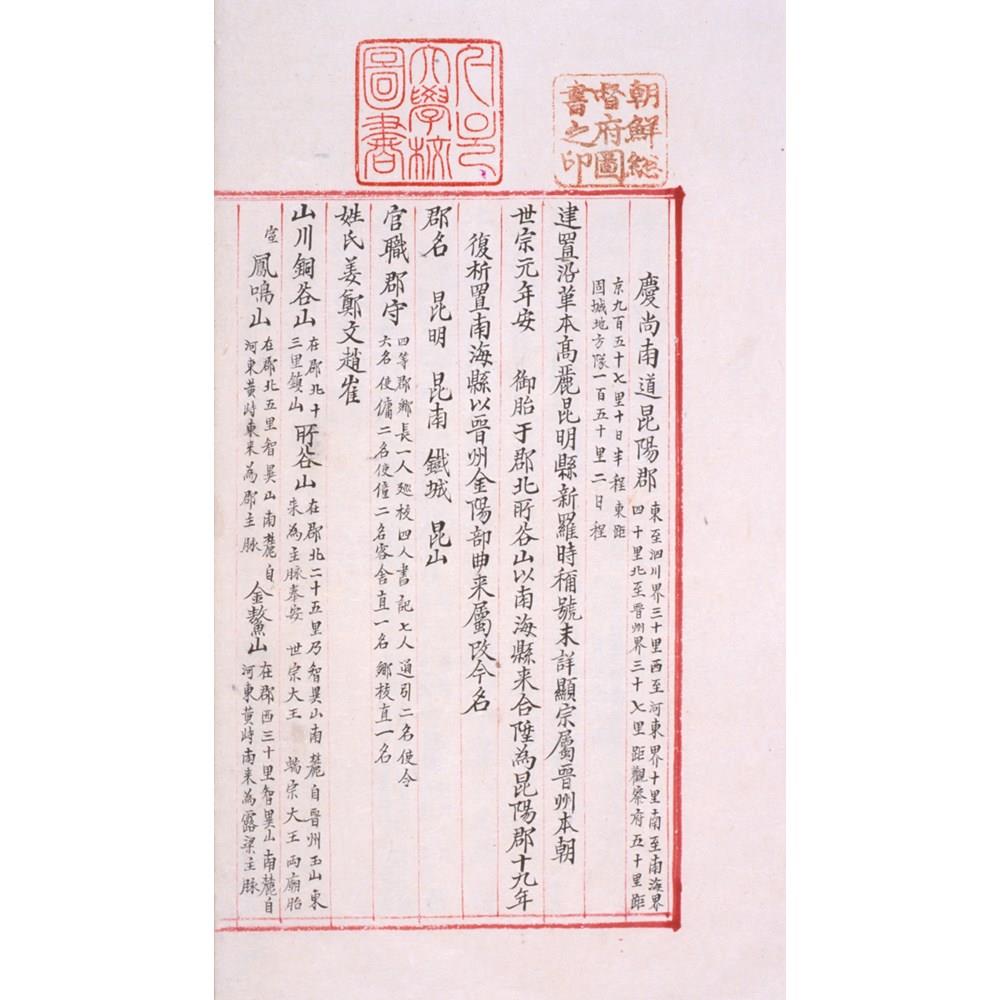 朝鮮總
督府圖
書之印
大學校
圖書
慶尚南道昆陽郡 東至泗川界三十里西至河東界十里南至南海界
四十里北至晋州界三十七里距觀察府五十里距
京九百五十七里十日半程東距
固城地方隊一百五十里二日程
建置沿革本高麗昆明縣新羅時稱號未詳顯宗屬晋州本朝
世宗元年安 御胎于郡北所谷山以南海縣来合陞為昆陽郡十九年
復析置南海縣以晋州金陽部曲来屬改今名
郡名 昆明 昆南 鐵城 昆山
官職郡守 四等郡鄉長一人廵校四人書記七人通引二名使令
六名使傭二名使僮二名客舍直一名鄉校直一名
姓氏姜鄭文趙崔
山川銅谷山 在郡北十
三里鎮山 所谷山 在郡北二十五里乃智異山南麓自晋州玉山東
来為主脉奉安 世宗大王 端宗大王 両廟胎
室 鳳鳴山 在郡北五里智異山南麓自
河東黄峙東来為郡主脉 金鰲山 在郡西三十里智異山南麓自
河東黄峙南来為露梁主脉